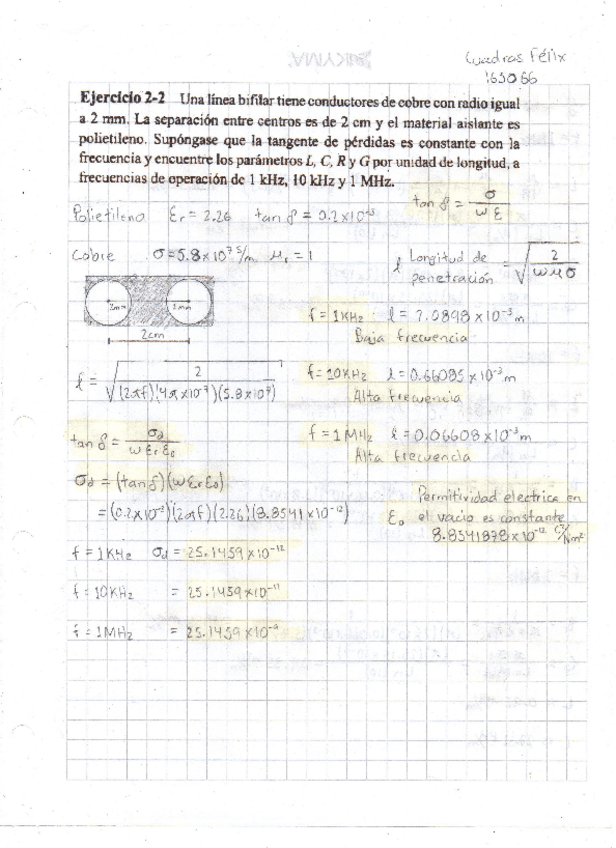 Cuadras Félix
163066
Ejercicio 2-2 Una línea bifilar tiene conductores de cobre con radio igual
a 2 mm. La separación entre centros es de 2 cm y el material aislante es
polietileno. Supóngase que la tangente de pérdidas es constante con la
frecuencia y encuentre los parámetros L, C, R y G por unidad de longitud, a
frecuencias de operación de 1 kHz, 10 kHz y 1 MHz.
tan δ = σ / ω ε
Polietileno εr = 2.26 tan δ = 0.2×10⁻³
Cobre σ = 5.8×10⁷ S/m μr = 1
l Longitud de penetración = √(2 / ω μ σ)
2mm 2mm
2cm
f = 1KHz l = 2.0898×10⁻³ m
Baja frecuencia
l = √(2 / (2πf)(4π×10⁻⁷)(5.8×10⁷))
f = 10KHz l = 0.66085×10⁻³ m
Alta frecuencia
f = 1MHz l = 0.06608×10⁻³ m
Alta frecuencia
tan δ = σd / ω εr ε0
σd = (tan δ)(ω εr ε0)
= (0.2×10⁻³)(2πf)(2.26)(8.8541×10⁻¹²)
Permitividad electrica en
ε0 el vacio es constante
8.8541878×10⁻¹² C²/Nm²
f = 1KHz σd = 25.1459×10⁻¹²
f = 10KHz = 25.1459×10⁻¹¹
f = 1MHz = 25.1459×10⁻⁹